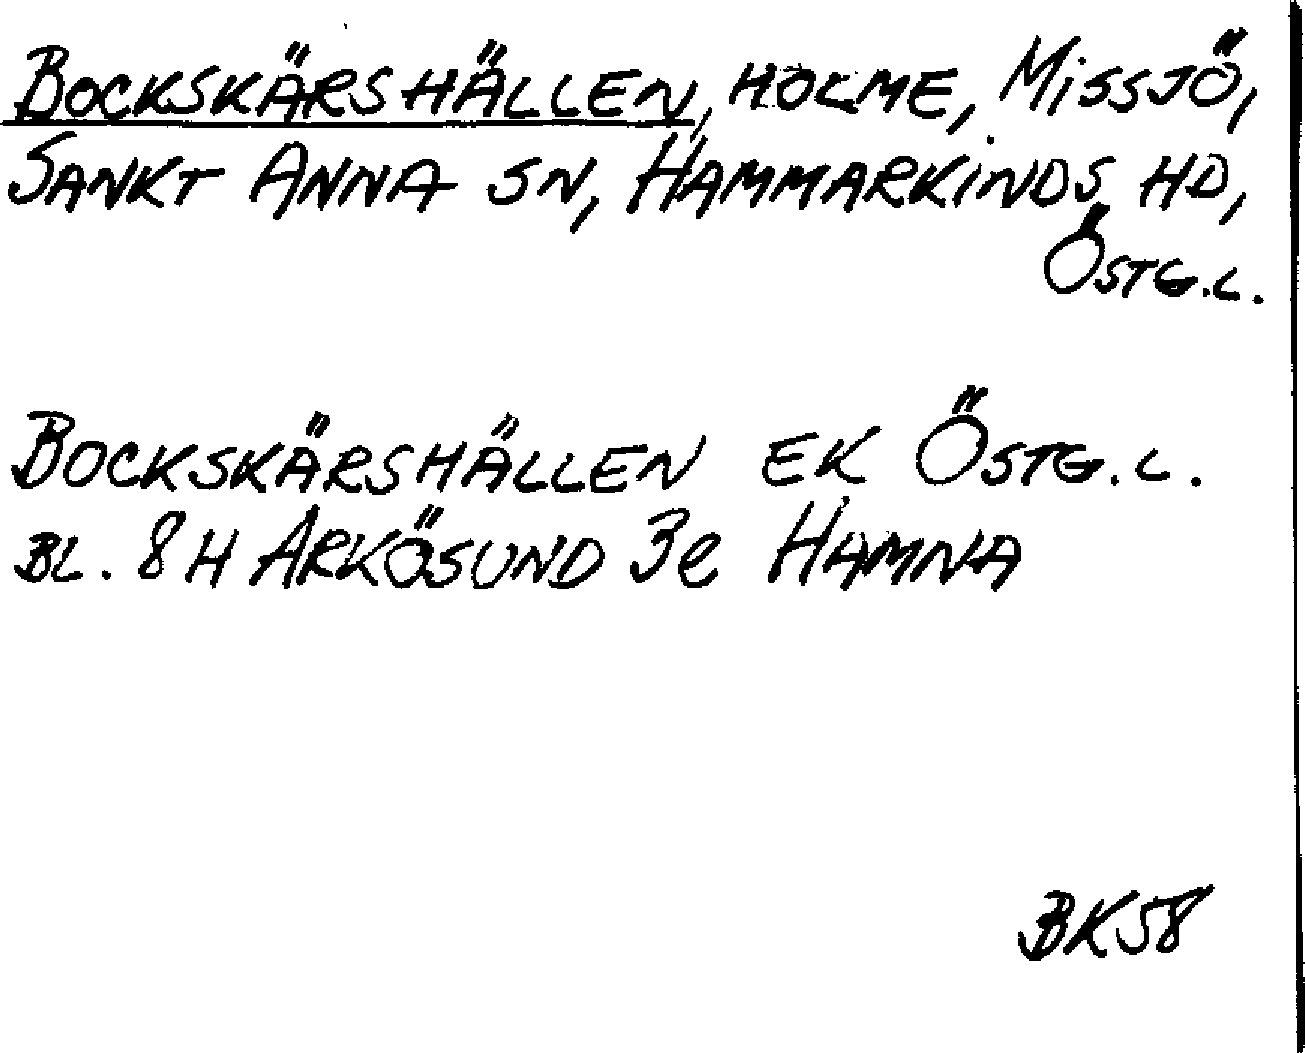 BOCKSKÄRSHÄLLEN, HOLME, MISSJÖ,
SANKT ANNA SN, HAMMARKINDS HD,
ÖSTG.L.
BOCKSKÄRSHÄLLEN EK ÖSTG.L.
BL. 8H ARKÖSUND 3e HAMNA
BK58